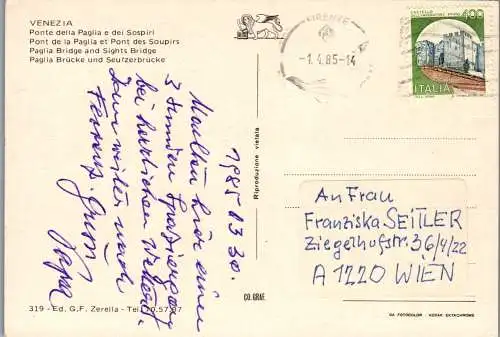 VENEZIA
Ponte della Paglia e dei Sospiri
Pont de la Paglia et Pont des Soupirs
Paglia Bridge and Sights Bridge
Paglia Brücke und Seufzerbrücke
FIRENZE
-1.4.85-14
400
ITALIA
1985 03 30.
Machten hier einen
3 Stunden Spaziergang
bei herrlichem Wetter.
Dann weiter nach
Florenz. Gruß
Papa
Riproduzione vietata
CO. GRAF.
An Frau
Franziska SEITLER
Ziegelhofstr. 36/4/22
A 1220 WIEN
319 - Ed. G.F. Zerella - Tel.
DA FOTOCOLOR KODAK EKTACHROME